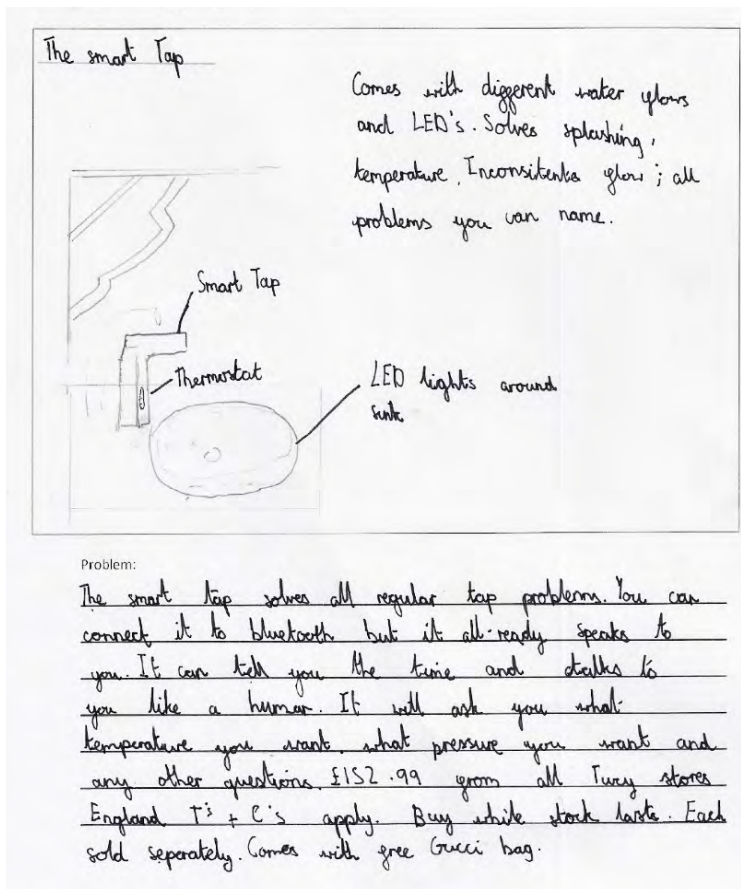 The smart Tap
Comes with different water flows
and LED's. Solves splashing,
temperature, Inconsitents flow ; all
problems you can name.
Smart Tap
Thermostat
LED lights around
sink
Problem:
The smart tap solves all regular tap problems. You can
connect it to bluetooth but it all-ready speaks to
you. It can tell you the time and talks to
you like a human. It will ask you what
temperature you want, what pressure you want and
any other questions. £152.99 from all stores
England T's + C's apply. Buy while stock lasts. Each
sold seperately. Comes with free Gucci bag.